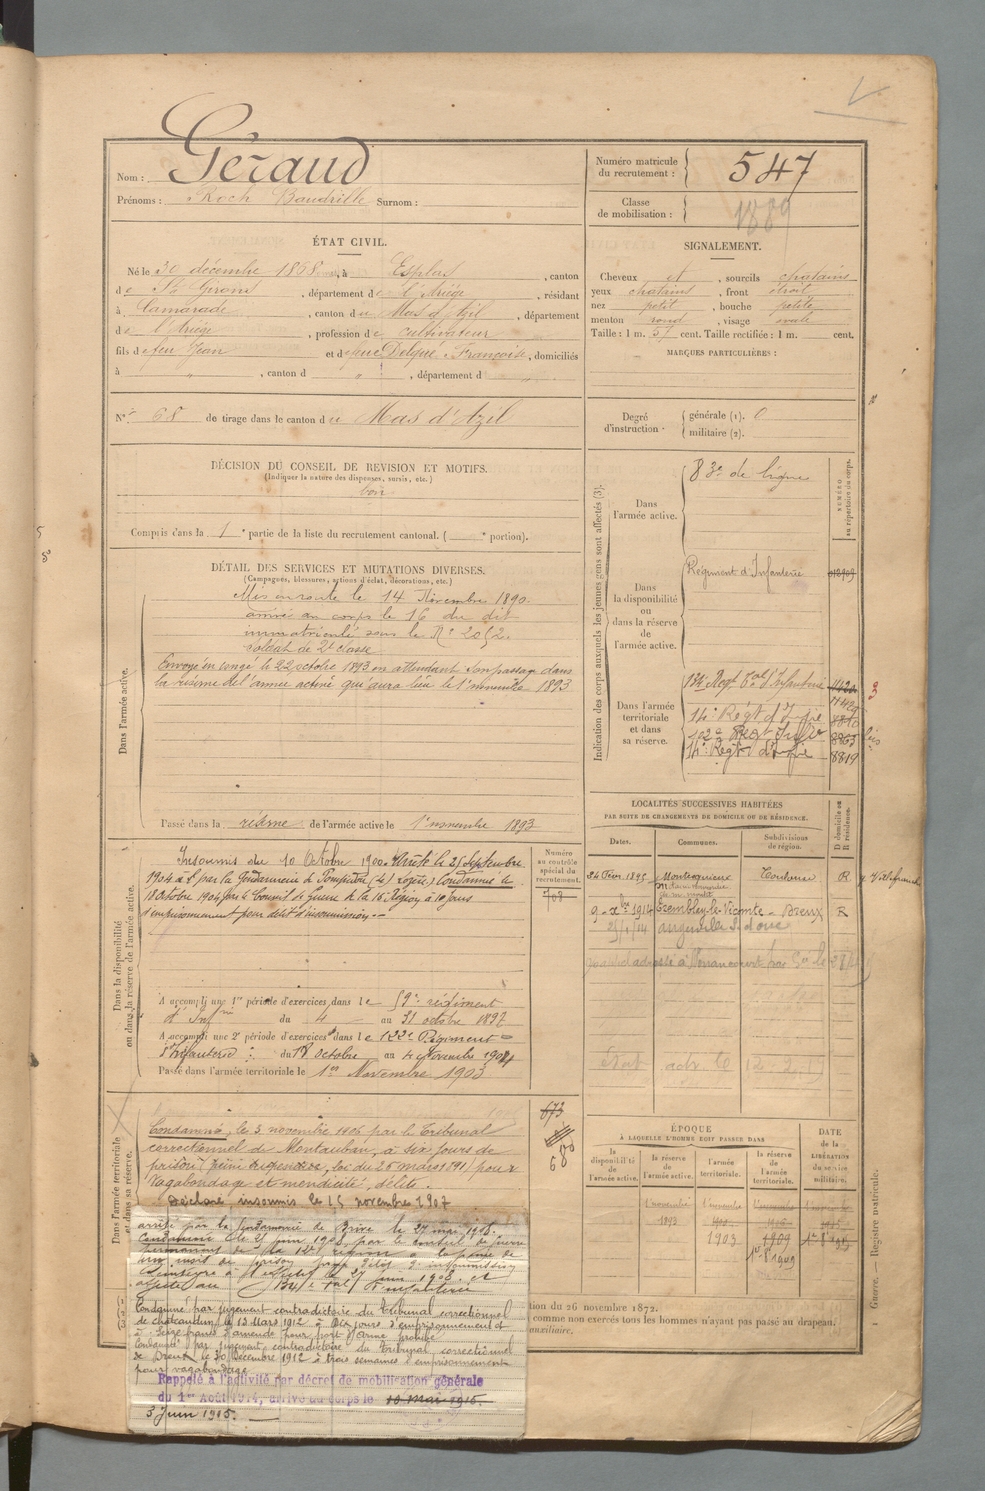 Nom : Géraud
Prénoms : Roch Baudrille Surnom :
Numéro matricule du recrutement : 547
Classe de mobilisation : 1889
ÉTAT CIVIL.
Né le 30 décembre 1868, à Esplas, canton
de St Girons, département de l'Ariège, résidant
à Camarade, canton du Mas d'Azil, département
de l'Ariège, profession de cultivateur
fils de feu Jean et de feue Delqué Françoise, domiciliés
à " , canton d " , département d "
SIGNALEMENT.
Cheveux et , sourcils chatains
yeux chatains , front étroit
nez petit , bouche petite
menton rond , visage ovale
Taille : 1 m. 57 cent. Taille rectifiée : 1 m. cent.
MARQUES PARTICULIÈRES :
N° 68 de tirage dans le canton du Mas d'Azil
Degré d'instruction : générale (1). 0
militaire (2).
DÉCISION DU CONSEIL DE REVISION ET MOTIFS.
(Indiquer la nature des dispenses, sursis, etc.)
bon
Compris dans la 1e partie de la liste du recrutement cantonal. ( e portion).
DÉTAIL DES SERVICES ET MUTATIONS DIVERSES.
(Campagnes, blessures, actions d'éclat, décorations, etc.)
Dans l'armée active.
Mis en route le 14 Novembre 1890.
arrivé au corps le 16 du dit
immatriculé sous le N° 2052.
soldat de 2e classe
Envoyé en congé le 22 octobre 1893 en attendant son passage dans
la réserve de l'armée active qui aura lieu le 1er novembre 1893
Passé dans la réserve de l'armée active le 1er novembre 1893
Indication des corps auxquels les jeunes gens sont affectés (3).
NUMÉRO au répertoire du corps.
Dans l'armée active.
83e de ligne
Dans la disponibilité ou dans la réserve de l'armée active.
Régiment d'Infanterie 012909
Dans l'armée territoriale et dans sa réserve.
134e Regt Tal d'Infanterie
14e Régt d'Infie
102e Regt Infie 8863
14e Régt d'Infie 8819
LOCALITÉS SUCCESSIVES HABITÉES
PAR SUITE DE CHANGEMENTS DE DOMICILE OU DE RÉSIDENCE.
Dates. Communes. Subdivisions de région. D domicile ou R résidence.
24 Févr. 1895 Montesquieu Toulouse R
9 - Xbre 1914 Trembley-le-Vicomte - Dreux R
Dans la disponibilité ou dans la réserve de l'armée active.
Numéro au contrôle spécial du recrutement.
708
Insoumis du 10 Octobre 1900. Arrêté le 25 Septembre
1904 à par la Gendarmerie de Pompidou (Lozère) Condamné le
18 octobre 1904 par le Conseil de Guerre de la 16e Région à 10 jours
d'emprisonnement pour délit d'insoumission.
A accompli une 1re période d'exercices dans le 59e régiment
d'Infrie du 4 au 31 octobre 1897
A accompli une 2e période d'exercices dans le 122e Régiment
d'Infanterie du 18 octobre au 4 Novembre 1904
Passé dans l'armée territoriale le 1er Novembre 1903
Dans l'armée territoriale et dans sa réserve.
673
680
Condamné, le 3 novembre 1906 par le Tribunal
correctionnel de Montauban, à six jours de
prison (peine suspendue, loi du 26 mars 1891) pour
Vagabondage et mendicité, délits.
Déclaré insoumis le 15 novembre 1907
arrêté par la gendarmerie de Brive le 27 mai 1908.
Condamné le 25 juin 1908 par le conseil de guerre
permanent de la 12e région à la peine de
un mois de prison pour délit d'insoumission
Condamné par jugement contradictoire du Tribunal correctionnel
de chateaudun le 13 Mars 1912 à Dix jours d'emprisonnement et
à Seize francs d'amende pour port d'arme prohibé
Condamné par jugement contradictoire du Tribunal correctionnel
de Dreux le 30 Décembre 1912 à trois semaines d'emprisonnement
pour vagabondage
Rappelé à l'activité par décret de mobilisation générale
du 1er Août 1914, arrivé au corps le 10 Mai 1915.
3 Juin 1915.
ÉPOQUE
À LAQUELLE L'HOMME DOIT PASSER DANS
la disponibilité de l'armée active. la réserve de l'armée active. l'armée territoriale. la réserve de l'armée territoriale. DATE de la LIBÉRATION du service militaire.
1er novembre 1er novembre
1893
1903 1909
tion du 26 novembre 1872.
comme non exercés tous les hommes n'ayant pas passé au drapeau.
auxiliaire.
Guerre. — Registre matricule.